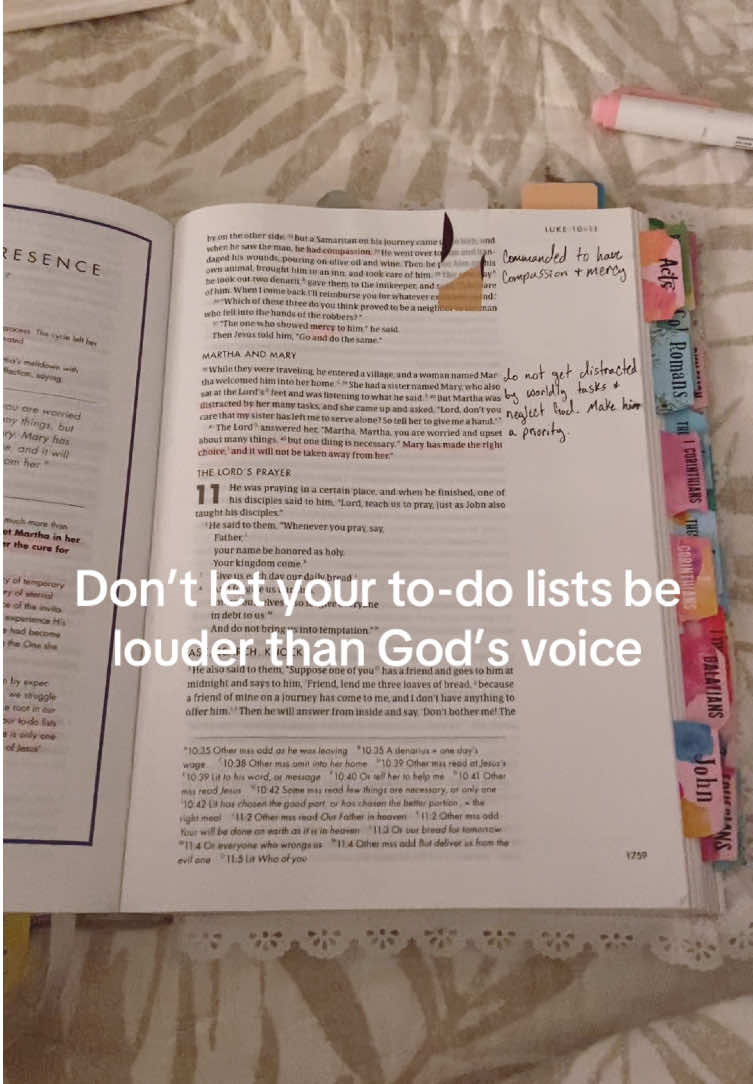 RESENCE
process. The cycle left her
meltdown with
saying,
ou are worried
ny things, but
ry. Mary has
e, and it will
om her."
much more than
et Martha in her
er the cure for
of temporary
of eternal
of the invita-
experience His
had become
the One she
n by expec-
we struggle
root in our
our to-do lists
is only one
of Jesus'
LUKE 10–11
by on the other side. But a Samaritan on his journey came and
when he saw the man, he had compassion. He went over to and ban-
daged his wounds, pouring on olive oil and wine. Then he his
own animal, brought him to an inn, and took care of him.
he took out two denarii, gave them to the innkeeper, and
of him. When I come back I'll reimburse you for whatever
"Which of these three do you think proved to be a man
who fell into the hands of the robbers?"
"The one who showed mercy to him," he said.
Then Jesus told him, "Go and do the same."
MARTHA AND MARY
While they were traveling, he entered a village, and a woman named Mar-
tha welcomed him into her home. She had a sister named Mary, who also
sat at the Lord's feet and was listening to what he said. But Martha was
distracted by her many tasks, and she came up and asked, "Lord, don't you
care that my sister has left me to serve alone? So tell her to give me a hand."
The Lord answered her, "Martha, Martha, you are worried and upset
about many things, but one thing is necessary. Mary has made the right
choice, and it will not be taken away from her."
THE LORD'S PRAYER
11 He was praying in a certain place, and when he finished, one of
his disciples said to him, "Lord, teach us to pray, just as John also
taught his disciples."
He said to them, "Whenever you pray, say,
Father,
your name be honored as holy.
Your kingdom come.
Give us each day our daily bread.
in debt to us.
And do not bring us into temptation."
He also said to them, "Suppose one of you has a friend and goes to him at
midnight and says to him, 'Friend, lend me three loaves of bread, because
a friend of mine on a journey has come to me, and I don't have anything to
offer him.' Then he will answer from inside and say, 'Don't bother me! The
10:35 Other mss add as he was leaving 10:35 A denarius = one day's
wage 10:38 Other mss omit into her home 10:39 Other mss read at Jesus's
10:39 Lit to his word, or message 10:40 Or tell her to help me 10:41 Other
mss read Jesus 10:42 Some mss read few things are necessary, or only one
10:42 Lit has chosen the good part, or has chosen the better portion; = the
right meal 11:2 Other mss read Our Father in heaven 11:2 Other mss add
Your will be done on earth as it is in heaven 11:3 Or our bread for tomorrow
11:4 Or everyone who wrongs us 11:4 Other mss add But deliver us from the
evil one 11:5 Lit Who of you
1759
Commanded to have
Compassion + mercy
do not get distracted
by worldly tasks +
neglect God. Make him
a priority.
Acts
Romans
1 CORINTHIANS
CORINTHIANS
GALATIANS
John
Don't let your to-do lists be
louder than God's voice